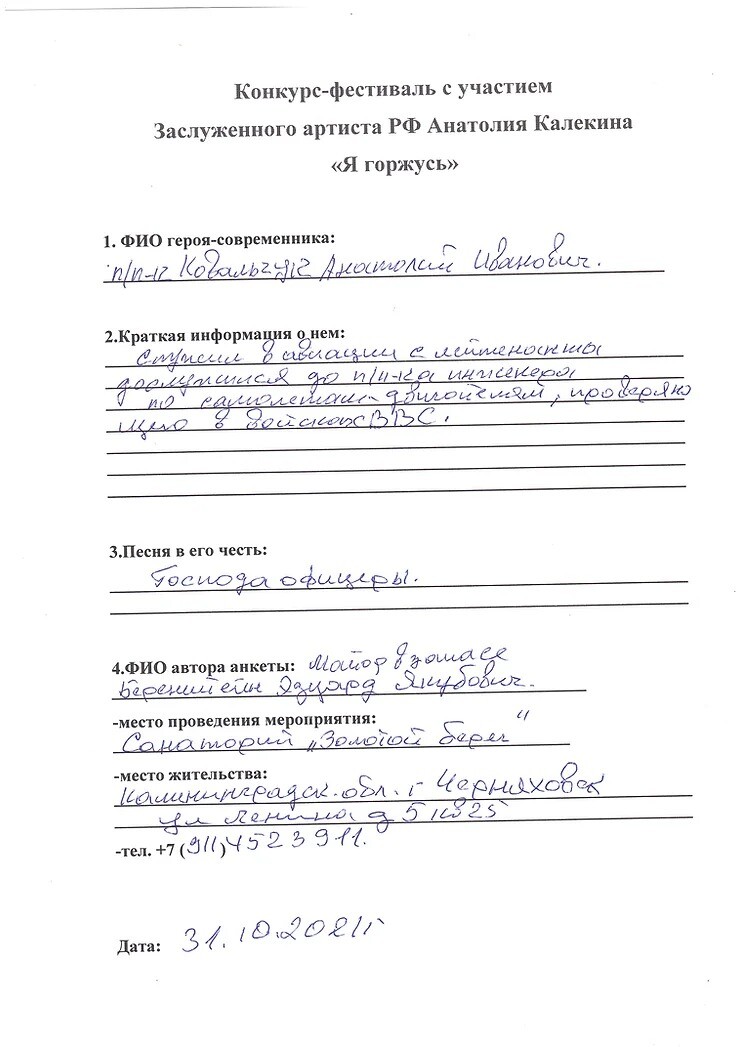 Конкурс-фестиваль с участием
Заслуженного артиста РФ Анатолия Калекина
«Я горжусь»
1. ФИО героя-современника:
п/п-к Ковальчук Анатолий Иванович.
2.Краткая информация о нем:
Служил в авиации с лейтенанта
дослужился до п/п-ка инженера
по самолетам-двигателям, проверяю
щего в войсках ВВС.
3.Песня в его честь:
Господа офицеры.
4.ФИО автора анкеты: Майор в запасе
Беренштейн Эдуард Якубович.
-место проведения мероприятия:
Санаторий „Золотой берег"
-место жительства:
Калинингрдск. обл. г Черняховск
ул Ленина д 5 кв 25
-тел. +7 (911)4523911.
Дата: 31.10.2021г